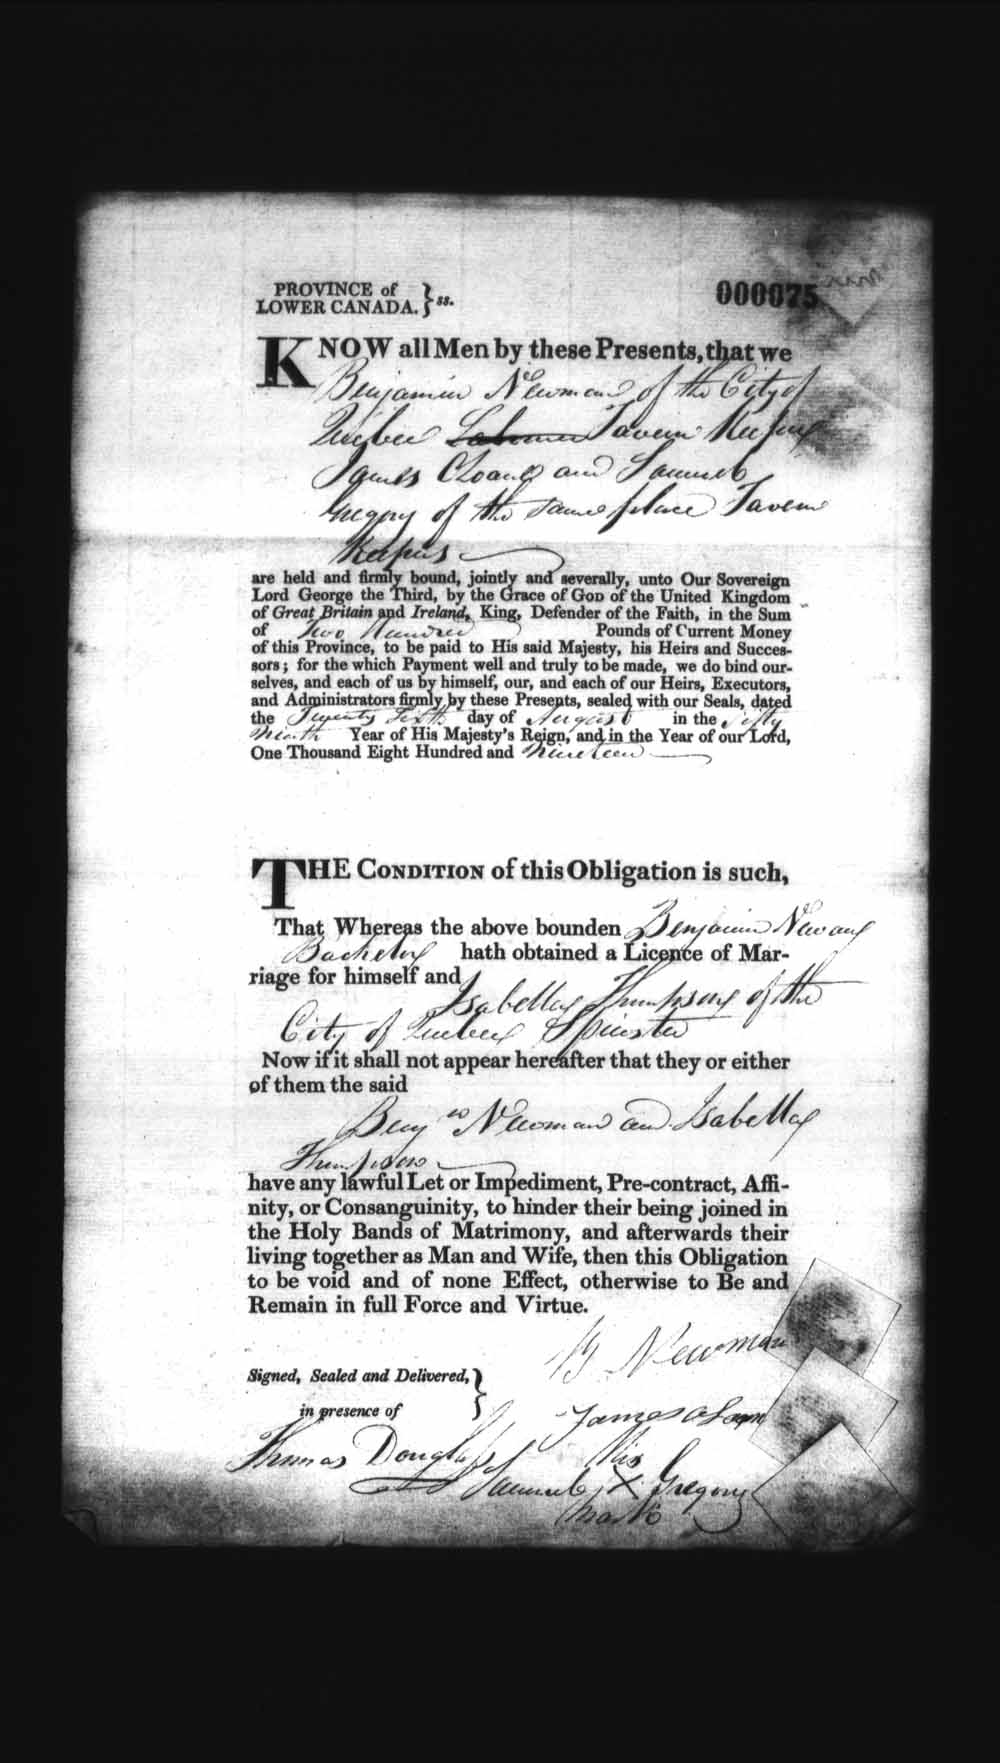 PROVINCE of
LOWER CANADA. } ss.
000075
KNOW all Men by these Presents, that we
Benjamin Newman of the City of
Quebec Labourer Tavern Keeper
James and Samuel
Gregory of the same place Tavern
Keepers
are held and firmly bound, jointly and severally, unto Our Sovereign
Lord George the Third, by the Grace of GOD of the United Kingdom
of Great Britain and Ireland, King, Defender of the Faith, in the Sum
of Two Hundred Pounds of Current Money
of this Province, to be paid to His said Majesty, his Heirs and Succes-
sors; for the which Payment well and truly to be made, we do bind our-
selves, and each of us by himself, our, and each of our Heirs, Executors,
and Administrators firmly by these Presents, sealed with our Seals, dated
the Twenty day of August in the fifty
Ninth Year of His Majesty's Reign, and in the Year of our Lord,
One Thousand Eight Hundred and Nineteen
THE CONDITION of this Obligation is such,
That Whereas the above bounden Benjamin Newman
Bachelor hath obtained a Licence of Mar-
riage for himself and
Isabella Thompson of the
City of Quebec Spinster
Now if it shall not appear hereafter that they or either
of them the said
Benjn Newman and Isabella
Thompson
have any lawful Let or Impediment, Pre-contract, Affi-
nity, or Consanguinity, to hinder their being joined in
the Holy Bands of Matrimony, and afterwards their
living together as Man and Wife, then this Obligation
to be void and of none Effect, otherwise to Be and
Remain in full Force and Virtue.
B Newman
Signed, Sealed and Delivered,
in presence of }
James
Thomas Douglas
his
Samuel X Gregory
mark